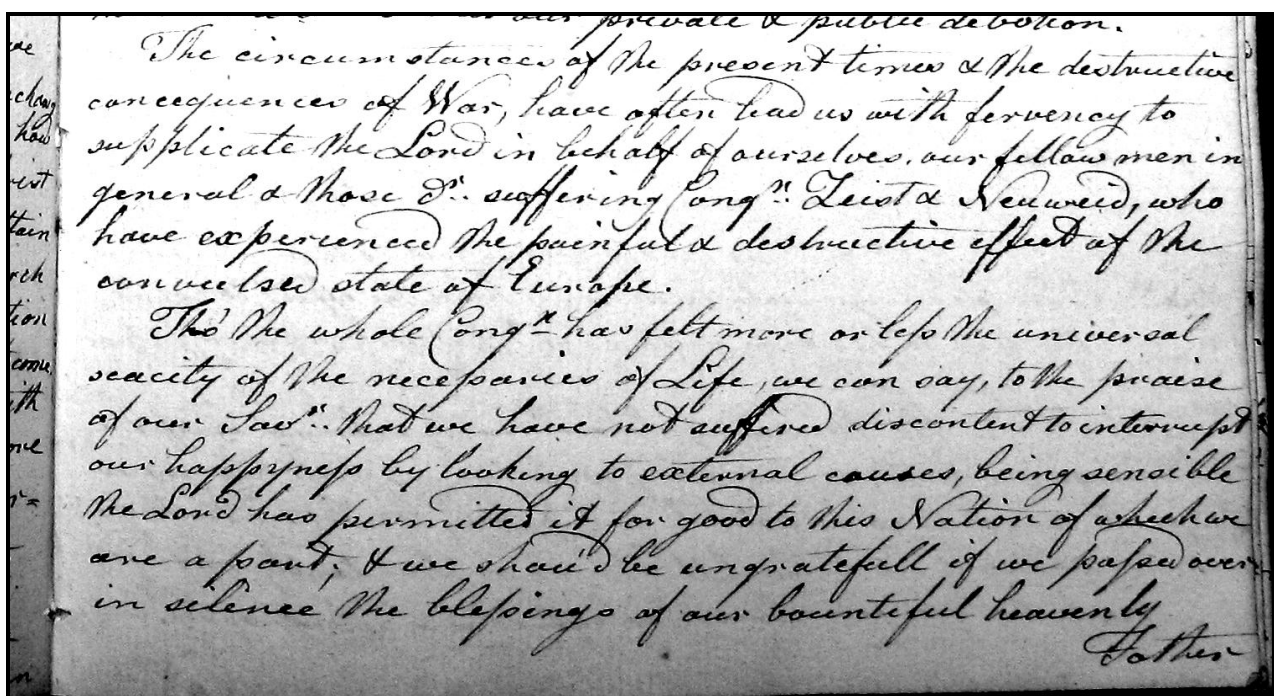 our private & public devotion.
The circumstances of the present times & the destructive
concequences of War, have often lead us with fervency to
supplicate the Lord in behalf of ourselves, our fellow men in
general & those dr. suffering Congn. Zeist & Neuweid, who
have experienced the painful & destructive effect of the
convulsed state of Europe.
Tho' the whole Congn has felt more or less the universal
scacity of the necessaries of Life, we can say, to the praise
of our Savr. that we have not suffired discontent to interrupt
our happyness by looking to external causes, being sensible
the Lord has permitted it for good to this Nation of which we
are a part; & we shou'd be ungratefull if we passed over
in silence the blessings of our bountiful heavenly
Father